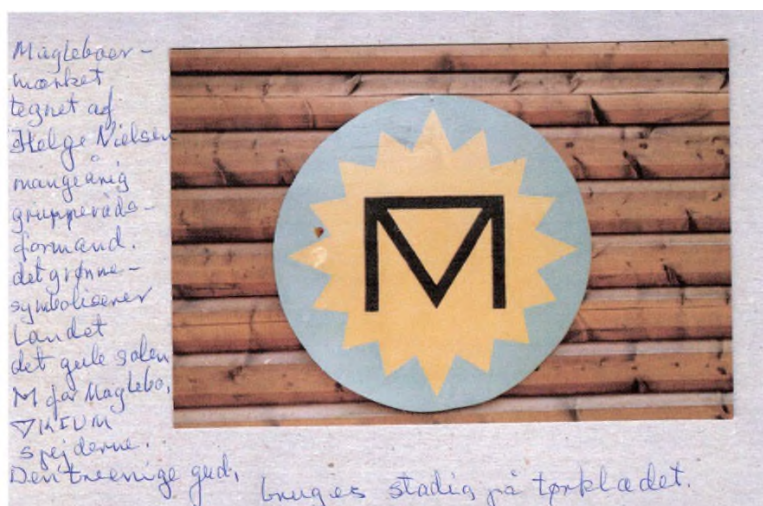 Magleboer-
mærket
tegnet af
Helge Nielsen
mangeårig
grupperåds-
formand.
det grønne-
symboliserer
Landet
det gule solen
M for Maglebo,
▽KFUM
spejderne.
Den treenige gud,
bruges stadig på tørklædet.
M